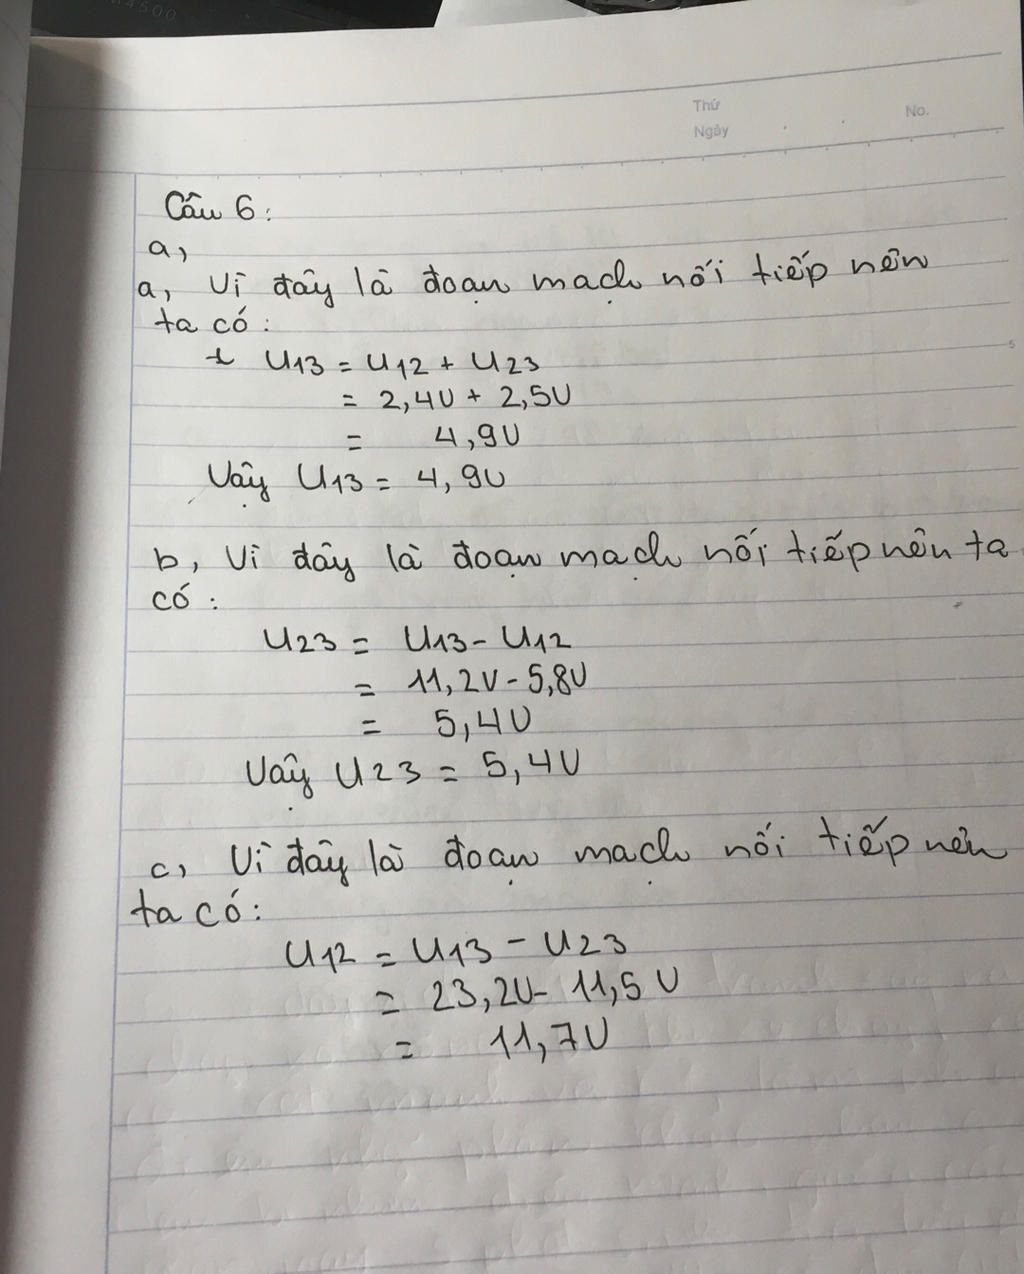 4500
Thứ
Ngày
No.
Câu 6:
a,
a, Vì đây là đoạn mạch nối tiếp nên
ta có:
+ U13 = U12 + U23
= 2,4V + 2,5V
= 4,9V
Vậy U13 = 4,9V
b, Vì đây là đoạn mạch nối tiếp nên ta
có:
U23 = U13 - U12
= 11,2V - 5,8V
= 5,4V
Vậy U23 = 5,4V
c, Vì đây là đoạn mạch nối tiếp nên
ta có:
U12 = U13 - U23
= 23,2V - 11,5V
= 11,7V
5